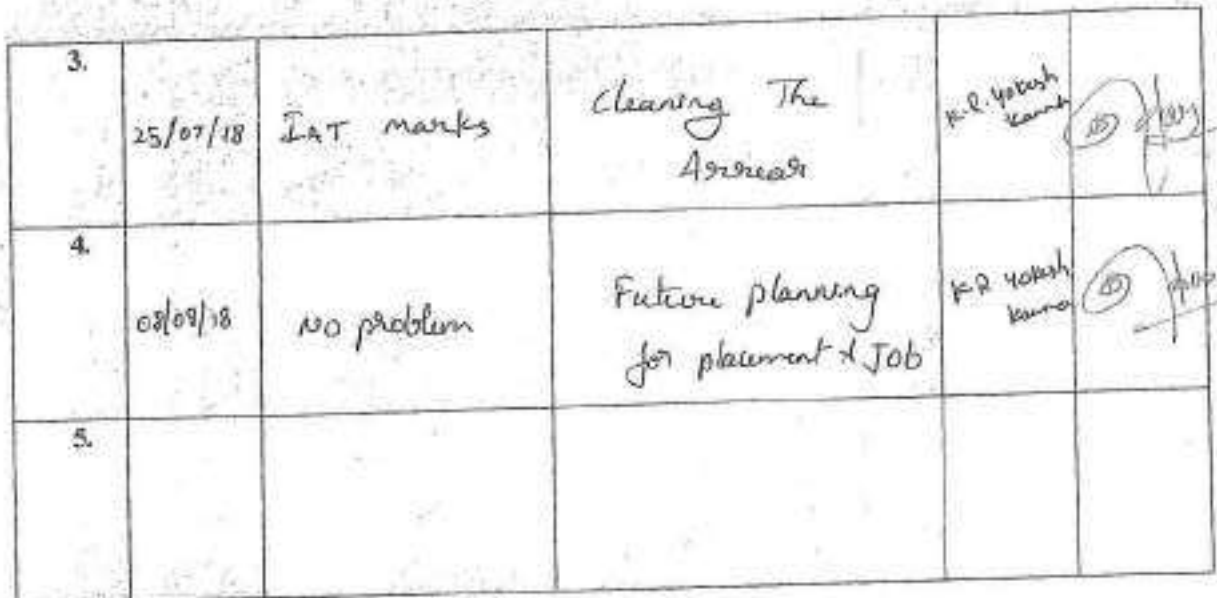 3.
25/07/18
IAT marks
Cleaning The
Arrear
K.R. Yokesh
4.
08/08/18
No problem
Future planning
for placement & Job
K.R Yokesh
5.